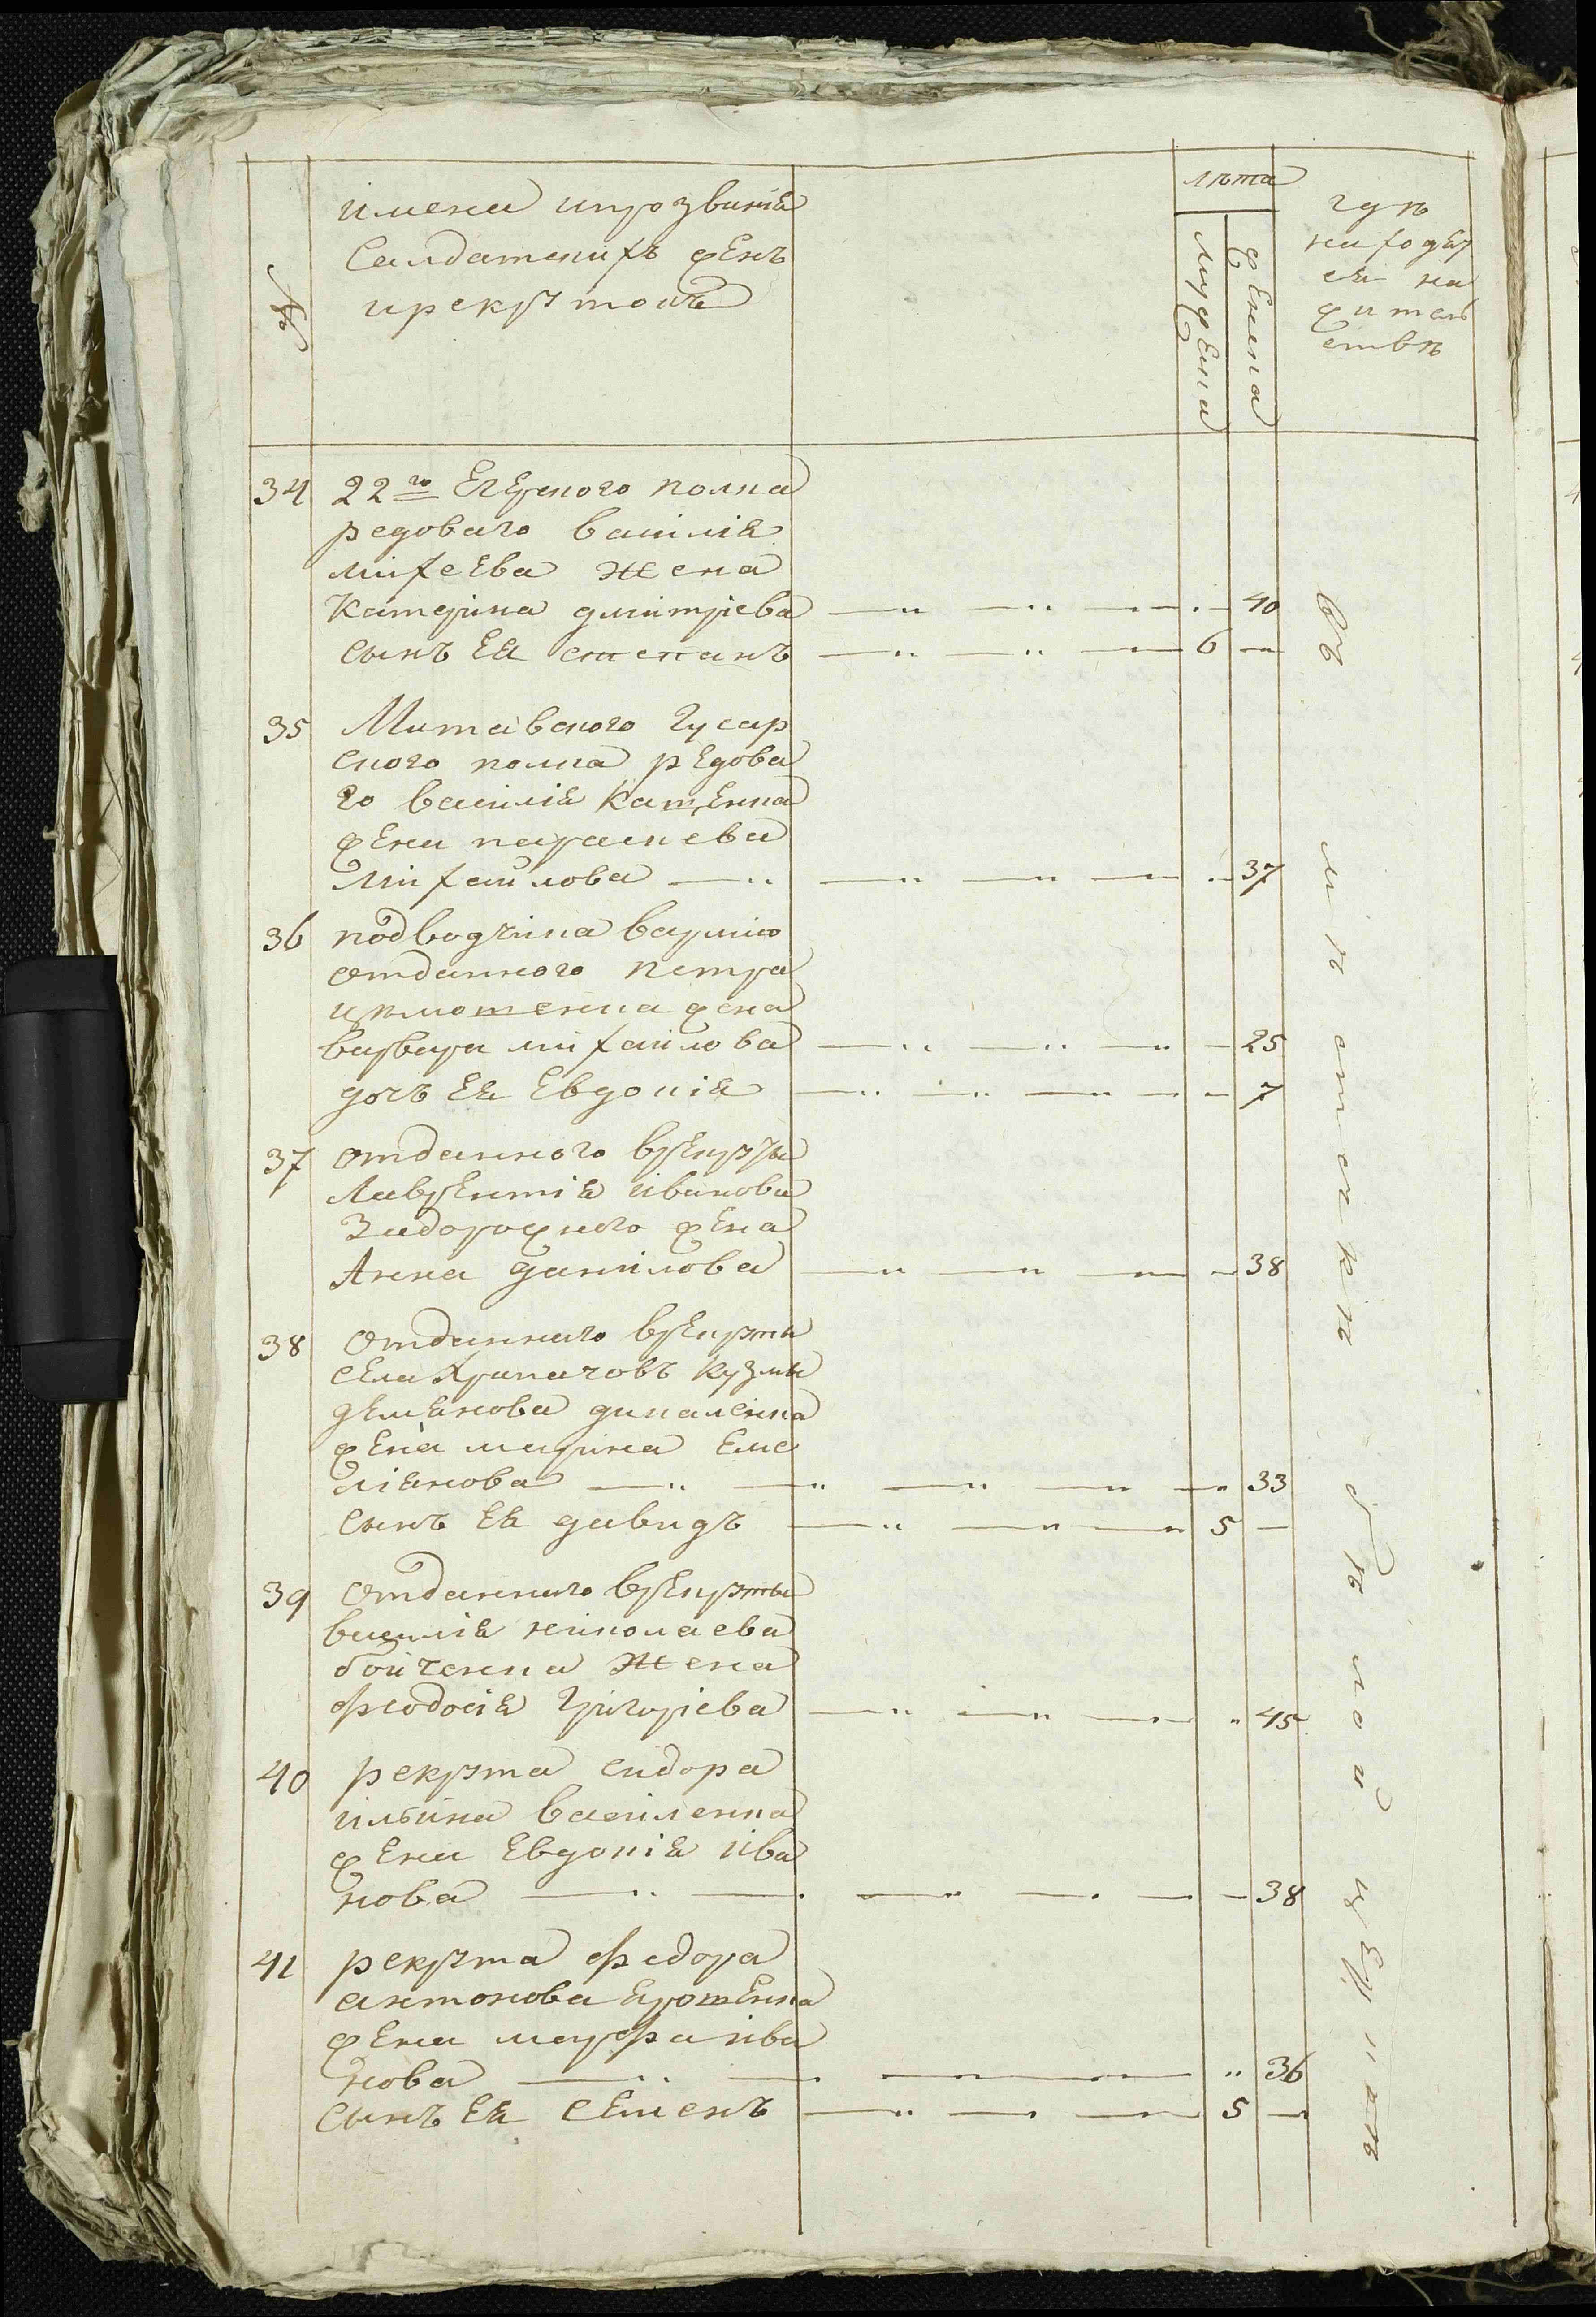 №
имена ипрозвания
Салдатских женъ
ирекрутовъ
лѣта
мужеска
женска
гдѣ
находят
ся на
жител
ствѣ
34 22го Егерского полка
редоваго василия
михеева жена
Катерина дмитриева 40
сынъ Ея степанъ 6
35 Митавского Гусар
ского полка редова
го василия
жена параскева
михайлова 37
36 подводчика вармию
отданного петра
жена
варвара михайлова 25
дочъ Ея Евдокия 7
37 отданного врекруты
Лаврентия иванова
Задорожного жена
Анна данилова 38
38 отданнаго врекруты
села Хрипачовъ кузмы
демянова
жена марина Еме
лиянова 33
сынъ Ея давидъ 5
39 отданнаго врекруты
василия николаева
бойченка жена
феодосия Григориева 45
40 рекрута сидора
ильина василенка
жена Евдокия ива
нова 38
41 рекрута федора
антонова Ерошенка
жена марфа ива
нова 36
сынъ Ея Семенъ 5
въ мѣстечкѣ